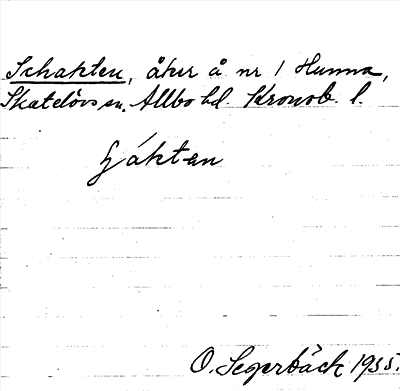 Schakten, åker å nr 1 Hunna,
Skatelövs sn. Allbo hd. Kronob. l.
ʃáktan
O. Segerbäck 1935.